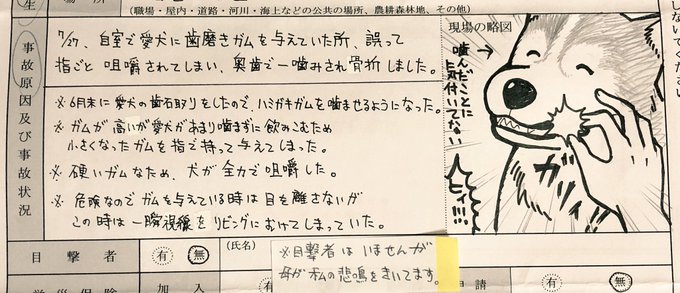 場所
(職場・屋内・道路・河川・海上などの公共の場所、農耕森林地、その他)
しないでください
事故原因及び事故状況
7/27、自室で愛犬に歯磨きガムを与えていた所、誤って
指ごと咀嚼されてしまい、奥歯で一噛みされ骨折しました。
※6月末に愛犬の歯石取りをしたので、ハミガキガムを噛ませるようになった。
※ガムが高いが愛犬があまり噛まずに飲みこむため
小さくなったガムを指で持って与えてしまった。
※硬いガムなため、犬が全力で咀嚼した。
※危険なのでガムを与えている時は目を離さないが
この時は一瞬視線をリビングにむけてしまっていた。
現場の略図
噛んだことに
気付いてない
ガッ
ヒィ!!!
目撃者
有
無
(氏名)
※目撃者はいませんが
母が私の悲鳴をきいてます。
加入
有
無
申請
有